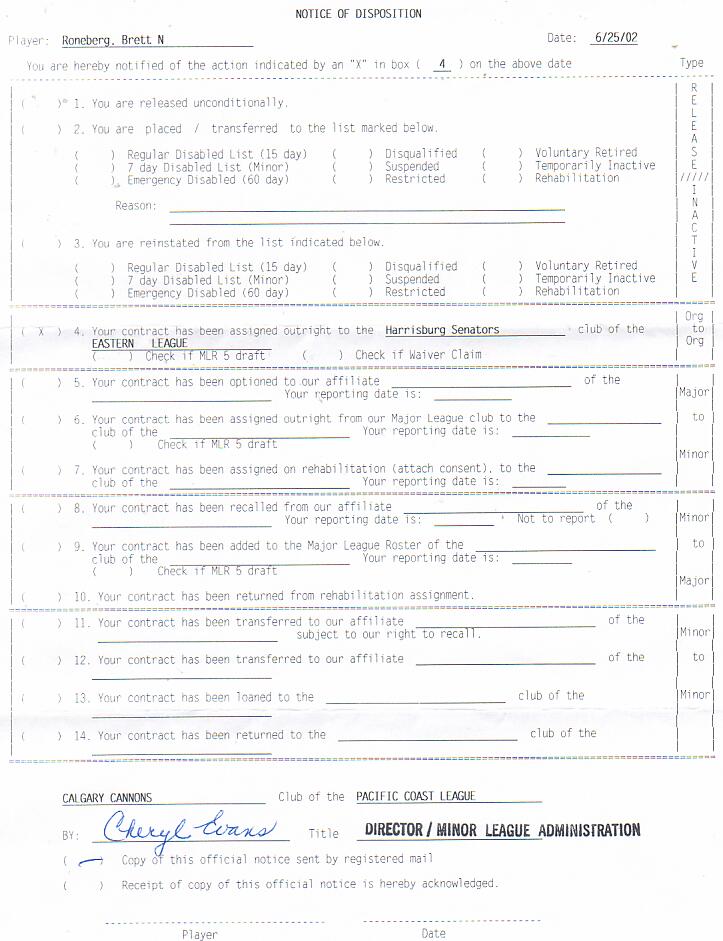 NOTICE OF DISPOSITION
Player: Roneberg, Brett N Date: 6/25/02
You are hereby notified of the action indicated by an "X" in box ( 4 ) on the above date Type
( ) 1. You are released unconditionally.
( ) 2. You are placed / transferred to the list marked below.
( ) Regular Disabled List (15 day) ( ) Disqualified ( ) Voluntary Retired
( ) 7 day Disabled List (Minor) ( ) Suspended ( ) Temporarily Inactive
( ) Emergency Disabled (60 day) ( ) Restricted ( ) Rehabilitation
Reason:
( ) 3. You are reinstated from the list indicated below.
( ) Regular Disabled List (15 day) ( ) Disqualified ( ) Voluntary Retired
( ) 7 day Disabled List (Minor) ( ) Suspended ( ) Temporarily Inactive
( ) Emergency Disabled (60 day) ( ) Restricted ( ) Rehabilitation
RELEASE ///// INACTIVE
( X ) 4. Your contract has been assigned outright to the Harrisburg Senators club of the
EASTERN LEAGUE
( ) Check if MLR 5 draft ( ) Check if Waiver Claim
Org
to
Org
( ) 5. Your contract has been optioned to our affiliate of the
Your reporting date is:
( ) 6. Your contract has been assigned outright from our Major League club to the
club of the Your reporting date is:
( ) Check if MLR 5 draft
( ) 7. Your contract has been assigned on rehabilitation (attach consent), to the
club of the Your reporting date is:
Major
to
Minor
( ) 8. Your contract has been recalled from our affiliate of the
Your reporting date is: Not to report ( )
( ) 9. Your contract has been added to the Major League Roster of the
club of the Your reporting date is:
( ) Check if MLR 5 draft
( ) 10. Your contract has been returned from rehabilitation assignment.
Minor
to
Major
( ) 11. Your contract has been transferred to our affiliate of the
subject to our right to recall.
( ) 12. Your contract has been transferred to our affiliate of the
( ) 13. Your contract has been loaned to the club of the
( ) 14. Your contract has been returned to the club of the
Minor
to
Minor
CALGARY CANNONS Club of the PACIFIC COAST LEAGUE
BY: Cheryl Evans Title DIRECTOR / MINOR LEAGUE ADMINISTRATION
( ) Copy of this official notice sent by registered mail
( ) Receipt of copy of this official notice is hereby acknowledged.
Player Date